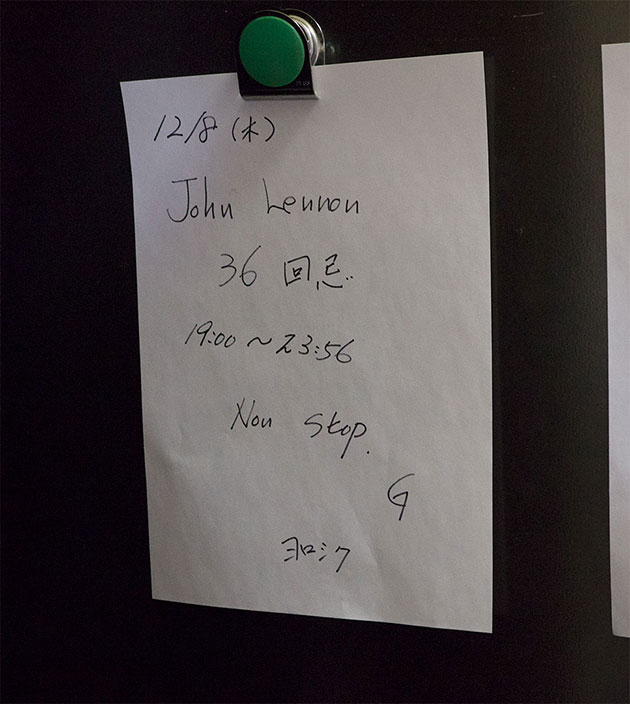 12/8 (木)
John Lennon
36 回忌
19:00～23:56
Non Stop.
G
ヨロシク